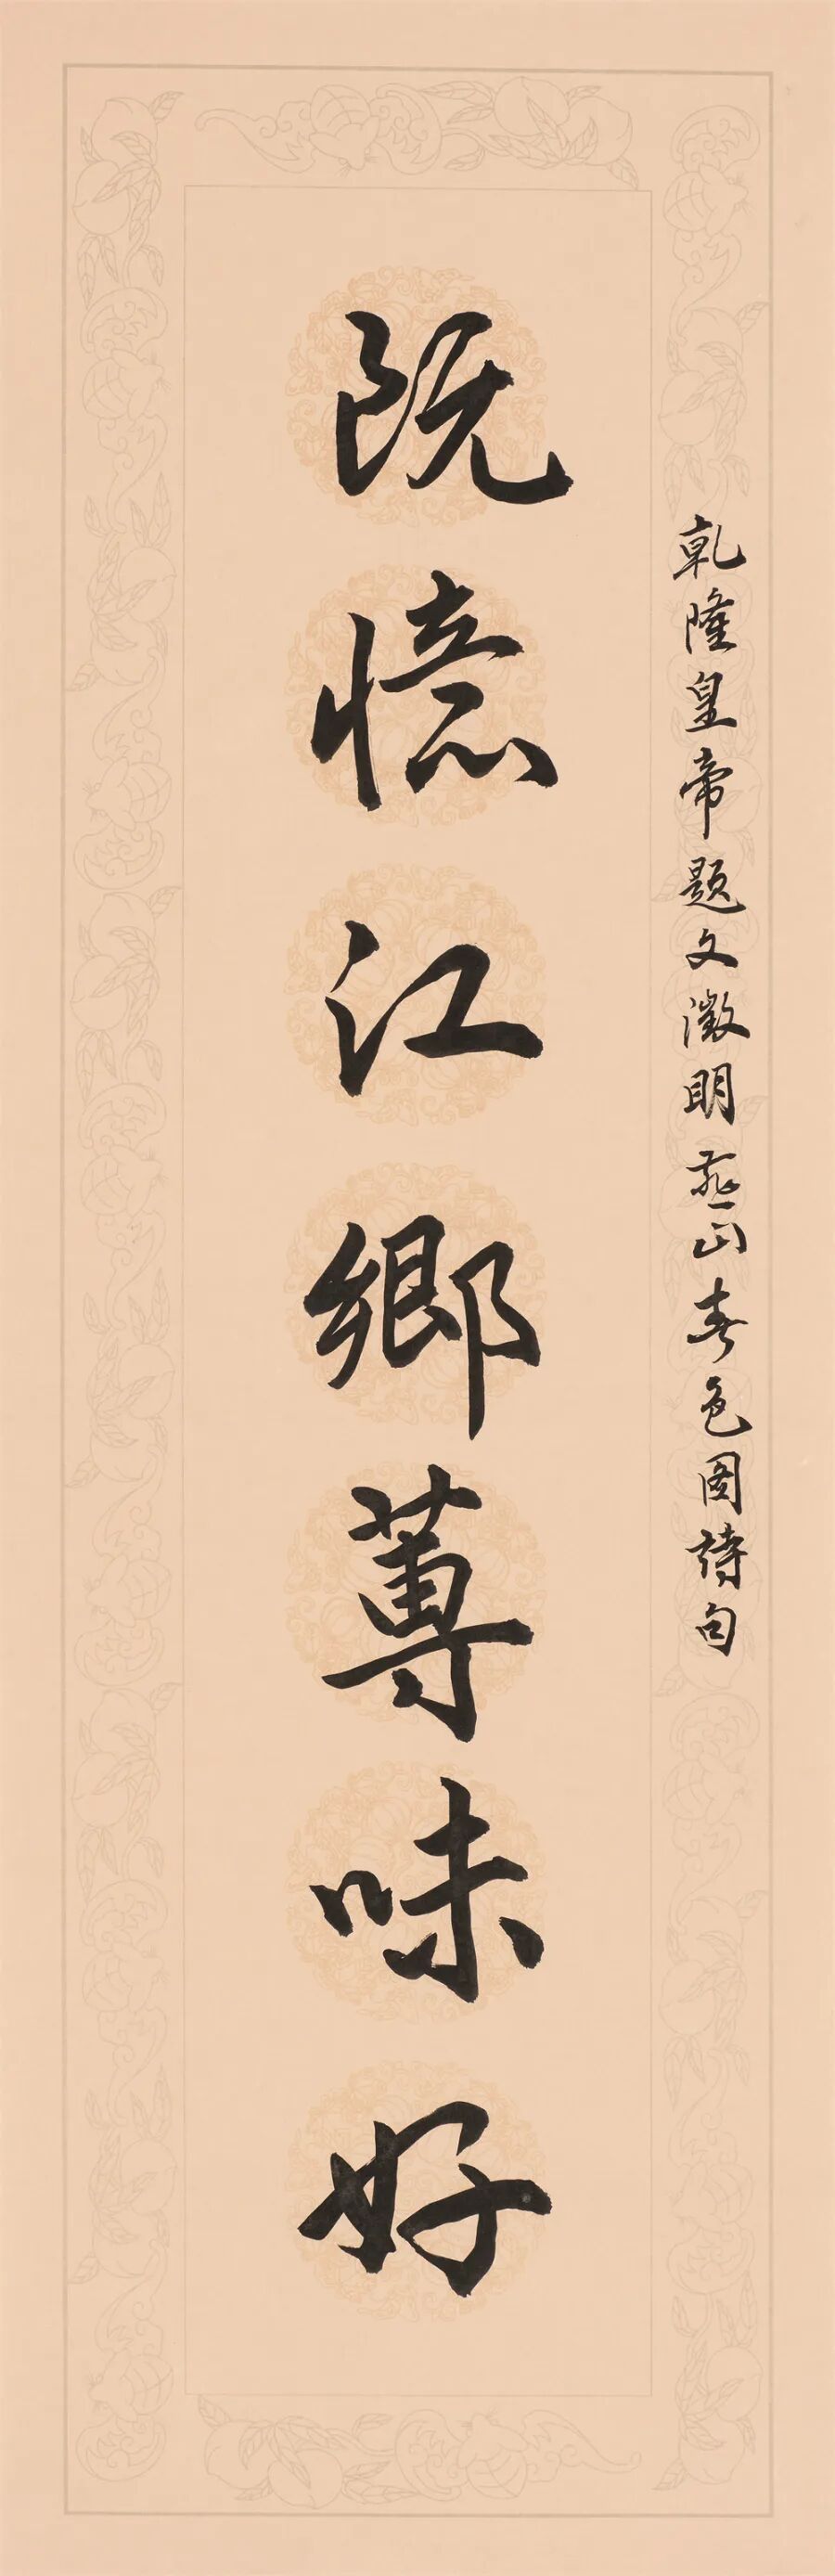 乾隆皇帝題文徵明燕山春色图詩句
既憶江鄉蓴味好